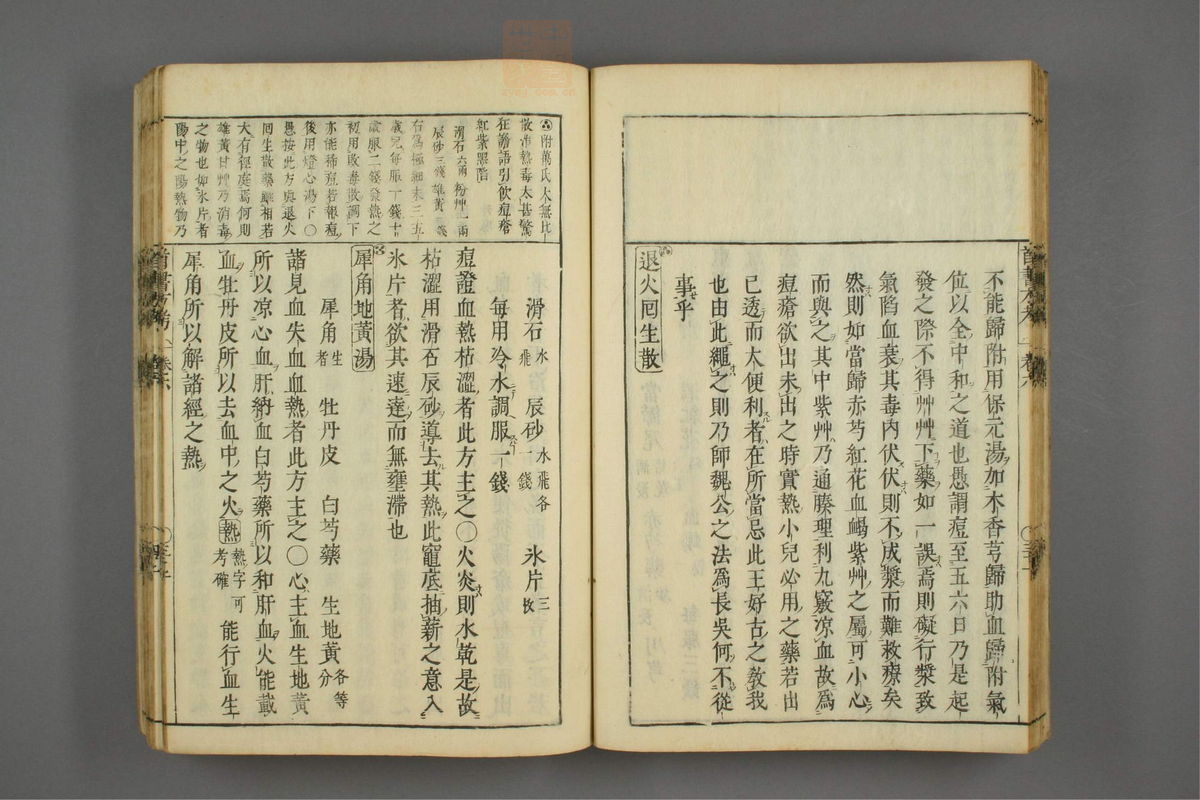 不能歸附用保元湯加木香芎歸助血歸附氣
位以全中和之道也愚謂痘至五六日乃是起
發之際不得艸艸下藥如一誤焉則礙行漿致
氣陷血衰其毒內伏伏則不成漿而難救療矣
然則如當歸赤芍紅花血蝎紫艸之屬可小心
而與之其中紫艸乃通腠理利九竅凉血故爲
痘瘡欲出未出之時實熱小兒必用之藥若出
已透而大便利者在所當忌此王好古之教我
也由此繩之則乃師魏公之法爲長吳何不從
事乎
退火囘生散
附萬氏大無比
散治熱毒太甚驚
狂譫語引飲痘瘡
紅紫黑陷
滑石六兩 粉艸一兩
辰砂三錢 雄黃
右爲極細末三五
歲兒每服一錢十
歲服二錢發熱之
初用敗毒散調下
亦能稀痘若報痘
後用燈心湯下〇
愚按此方與退火
囘生散藥雖相若
大有徑庭焉何則
雄黃甘艸乃消毒
之物也如氷片者
陽中之陽熱物乃
滑石水飛 辰砂水飛各一錢 氷片三
每用冷水調服一錢
痘證血熱枯澀者此方主之〇火炎則水乾是故
枯澀用滑石辰砂導去其熱此竈底抽薪之意入
氷片者欲其速達而無壅滯也
犀角地黃湯
犀角生者 牡丹皮 白芍藥 生地黃各等分
諸見血失血血熱者此方主之〇心主血生地黃
所以凉心血肝納血白芍藥所以和肝血火能載
血牡丹皮所以去血中之火熱熱字可考確能行血生
犀角所以解諸經之熱